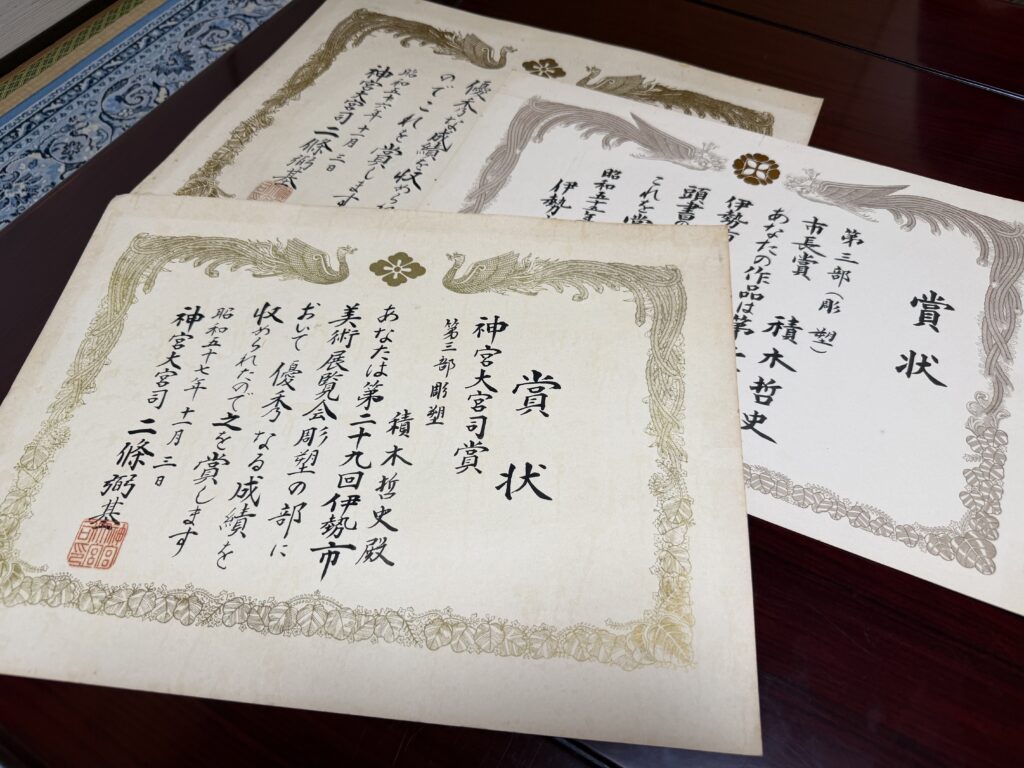 賞状
神宮大宮司賞
第三部彫塑
積木哲史殿
あなたは第二十九回伊勢市
美術展覧会彫塑の部に
おいて優秀なる成績を
収められたので之を賞します
昭和五十七年十一月三日
神宮大宮司二條弼基
賞状
第三部(彫塑)
市長賞 積木哲史
あなたの作品は第
伊勢市
頭書の
これを賞
昭和五十
伊勢
優秀な成績を収められ
のでこれを賞します
年十一月三日
神宮大宮司二條弼基